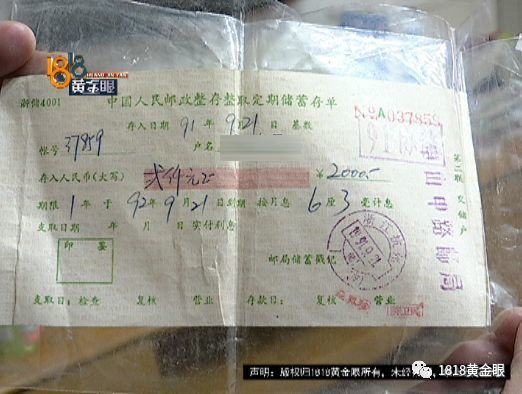 1818
黄金眼
浙储4001
中国人民邮政整存整取定期储蓄存单
存入日期 91年9月21日 基数
№A037859
帐号 37859 户名
存入人民币(大写) 贰仟元正 ¥2000
期限 1年 于 92年9月21日到期 按月息 6厘3毫计息
支取日期 年 月 日 实付利息
印鉴
邮局储蓄戳记
支取日: 检查 复核 营业 存款日: 复核 营业
第二联 交储户
山中路邮局
浙江杭州
声明:版权归1818黄金眼所有,未经
1818黄金眼